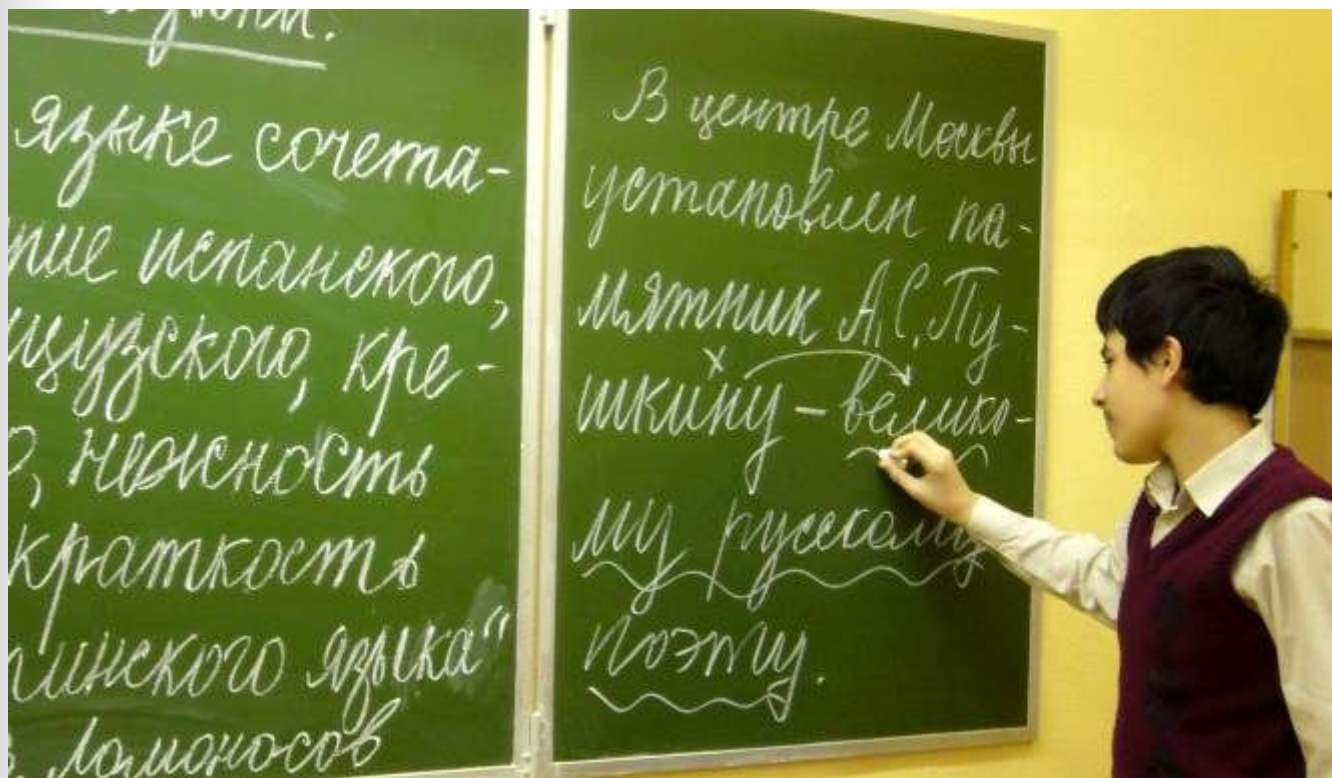 языке сочета-
ние испанского,
цузского, кре-
нежность
краткость
инского языка"
Ломоносов
В центре Москвы
установлен па-
мятник А.С. Пу-
шкину – велико-
му русскому
поэту.